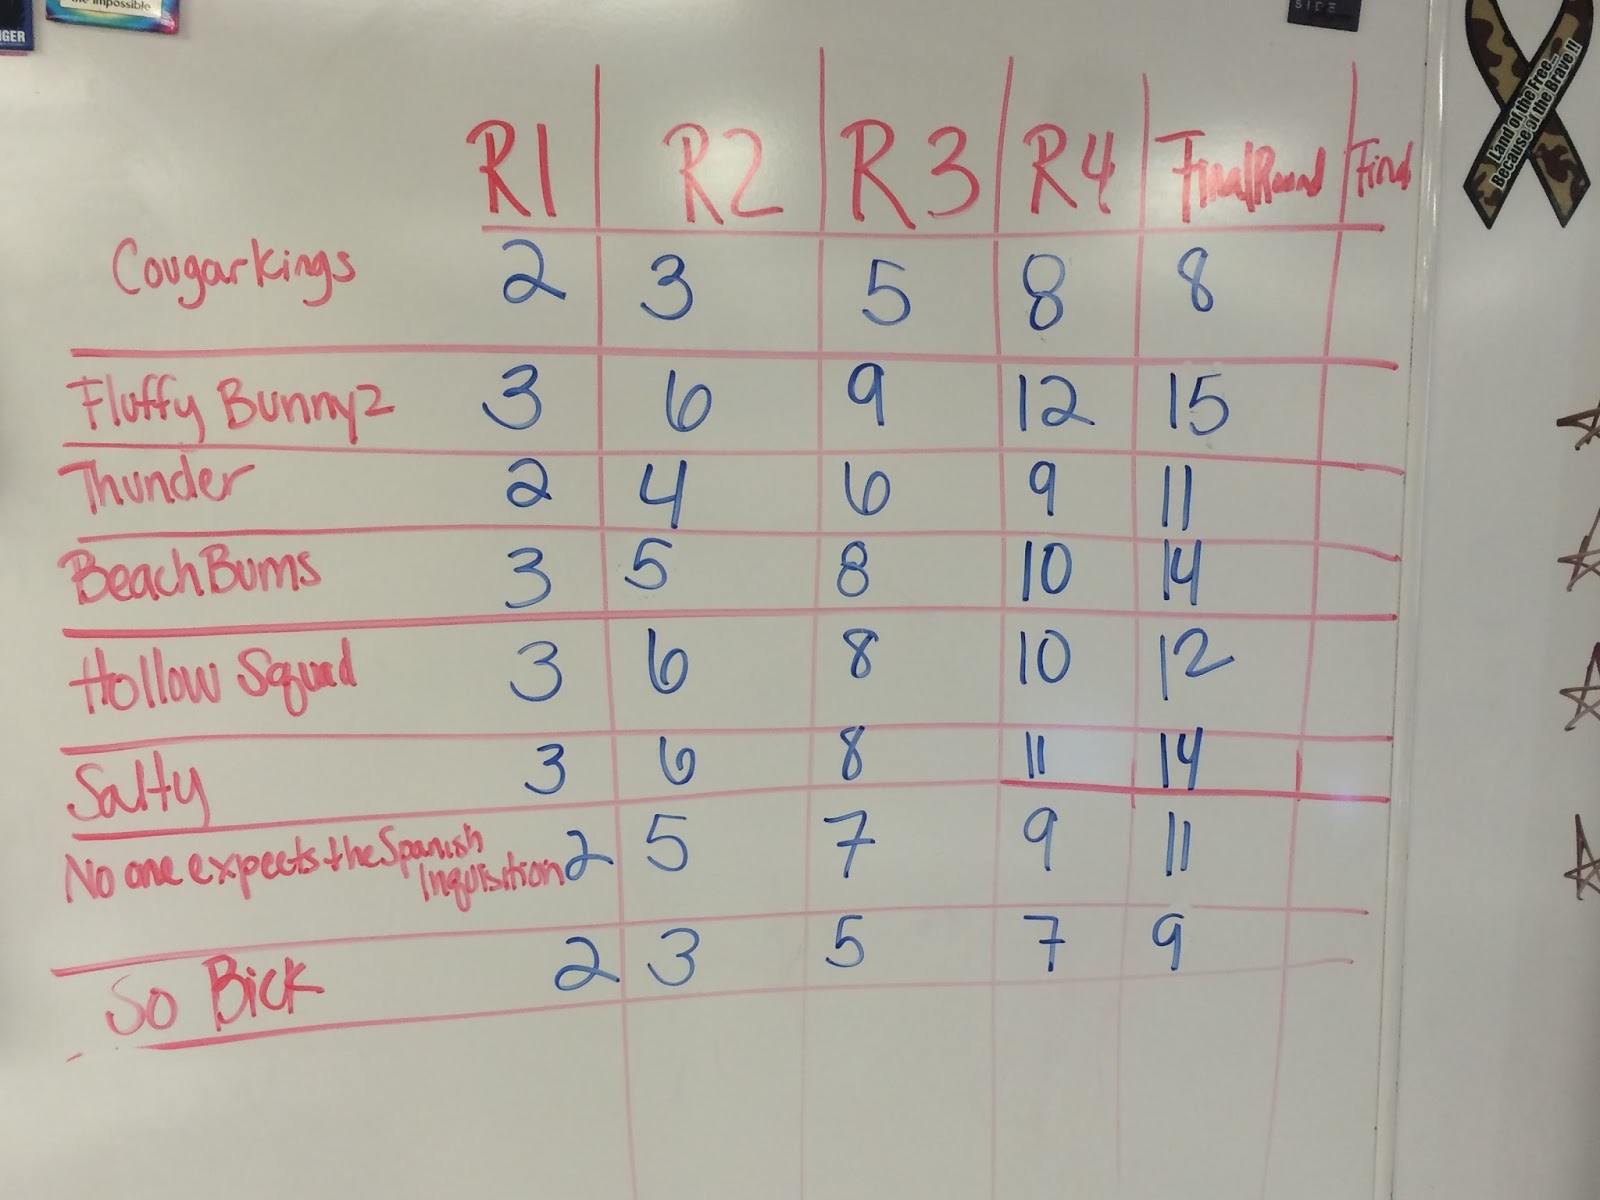 NGER
the impossible
SIDE
Land of the Free...
Because of the Brave!!
R1 R2 R3 R4 Final Round Final
Cougar Kings 2 3 5 8 8
Fluffy Bunnyz 3 6 9 12 15
Thunder 2 4 6 9 11
Beach Bums 3 5 8 10 14
Hollow Squad 3 6 8 10 12
Salty 3 6 8 11 14
No one expects the Spanish
Inquisition 2 5 7 9 11
So Bick 2 3 5 7 9